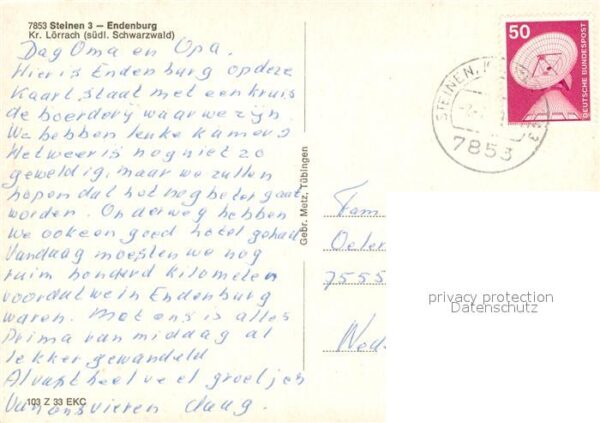 7853 Steinen 3 – Endenburg
Kr. Lörrach (südl. Schwarzwald)
Dag Oma en Opa.
Hier is Endenburg op deze
Kaart staat met een kruis
de boerderij waar we zijn.
We hebben leuke kamers
Het weer is nog niet zo
geweldig, maar we zullen
hopen dat het nog beter gaat
worden. Onderweg hebben
we ook een goed hotel gehad
Vandaag moesten we nog
ruim honderd kilometer
voordat we in Endenburg
waren. Met ons is alles
Prima van middag al
lekker gewandeld
Alvast heel veel groetjes
Van ons vieren daag.
103 Z 33 EKC
Gebr. Metz, Tübingen
50
DEUTSCHE BUNDESPOST
STEINEN, K
7853
Fam
7555
privacy protection
Datenschutz
Ned